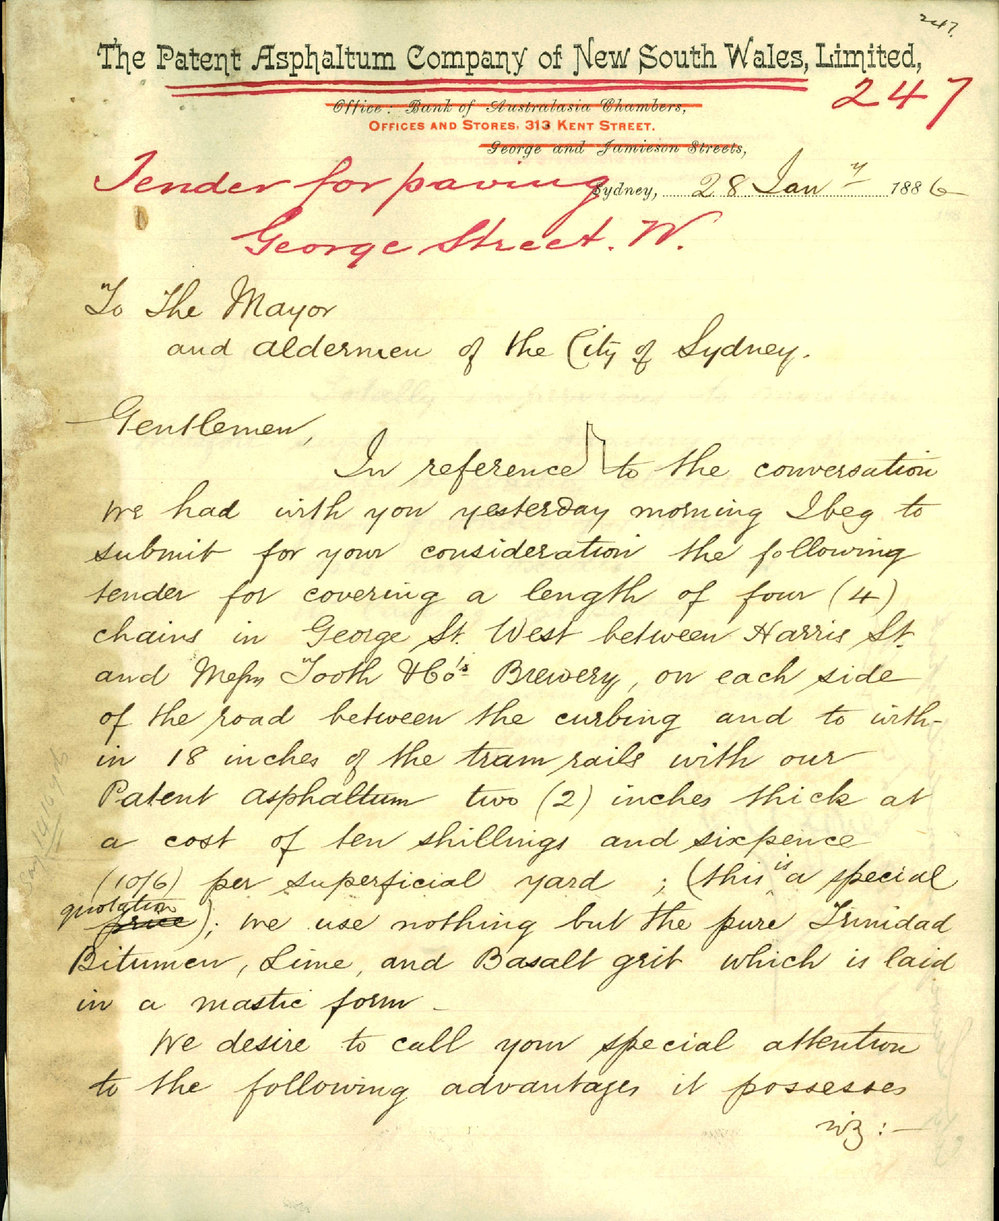 247.
The Patent Asphaltum Company of New South Wales, Limited,
247
Office: Bank of Australasia Chambers,
OFFICES AND STORES, 313 KENT STREET.
George and Jamieson Streets,
Tender for paving
Sydney, 28 Jany 1886
George Street. W.
To The Mayor
and aldermen of the City of Sydney.
Gentlemen,
In reference to the conversation
we had with you yesterday morning I beg to
submit for your consideration the following
tender for covering a length of four (4)
chains in George St. West between Harris St.
and Messrs Tooth & Co's Brewery, on each side
of the road between the curbing and to with-
in 18 inches of the tram rails with our
Patent asphaltum two (2) inches thick at
a cost of ten shillings and sixpence
(10/6) per superficial yard ; (this is a special
quotation
price); we use nothing but the pure Trinidad
Bitumen, Lime, and Basalt grit which is laid
in a mastic form –
We desire to call your special attention
to the following advantages it possesses
viz :–
Say 1410 yds